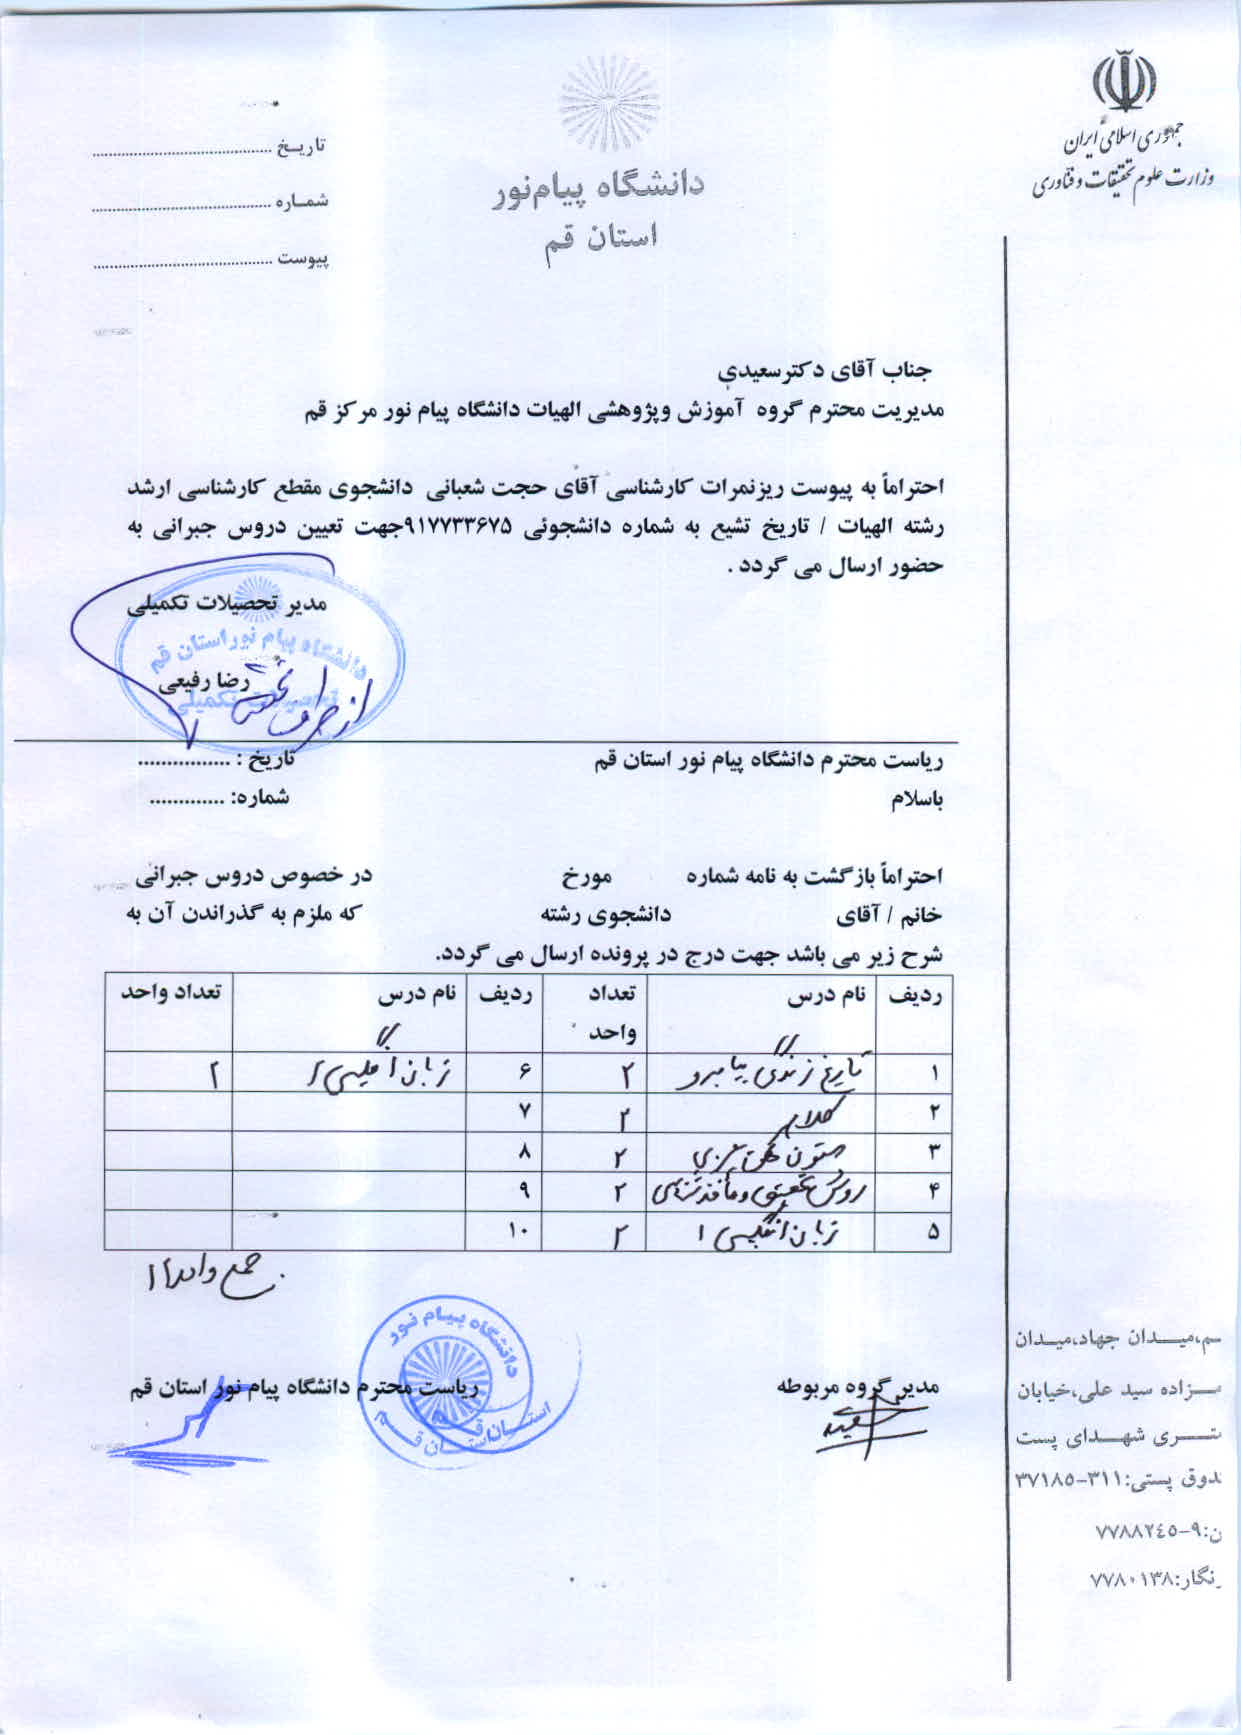 جمهوری اسلامی ایران
وزارت علوم تحقیقات و فناوری
دانشگاه پیام‌نور
استان قم
تاریـخ ............................................
شمـاره ............................................
پیوست ............................................
جناب آقای دکترسعیدی
مدیریت محترم گروه آموزش وپژوهشی الهیات دانشگاه پیام نور مرکز قم
احتراماً به پیوست ریزنمرات کارشناسی آقای حجت شعبانی دانشجوی مقطع کارشناسی ارشد
رشته الهیات / تاریخ تشیع به شماره دانشجوئی ۹۱۷۷۳۳۶۷۵جهت تعیین دروس جبرانی به
حضور ارسال می گردد .
مدیر تحصیلات تکمیلی
دانشگاه پیام نور استان قم
رضا رفیعی
تحصیلات تکمیلی
از طرف
ریاست محترم دانشگاه پیام نور استان قم
تاریخ : ................
باسلام
شماره: .............
احتراماً بازگشت به نامه شماره مورخ در خصوص دروس جبرانی
خانم / آقای دانشجوی رشته که ملزم به گذراندن آن به
شرح زیر می باشد جهت درج در پرونده ارسال می گردد.
ردیف نام درس تعداد واحد ردیف نام درس تعداد واحد
۱ تاریخ زندگی پیامبر ۲ ۶ زبان انگلیسی ۲ ۲
۲ کلام ۲ ۷
۳ متون عربی ۲ ۸
۴ روش تحقیق و ۲ ۹
۵ زبان انگلیسی ۱ ۲ ۱۰
جمع
دانشگاه پیـام نور
استـان قـم
مدیر گروه مربوطه
ریاست محترم دانشگاه پیام نور استان قم
سعیدی
ـم،میــدان جهاد،میـدان
ـزاده سید علی،خیابان
ـتـری شهـدای پست
ـدوق پستی:۳۱۱-۳۷۱۸۵
ن:۹-۷۷۸۸۲٤٥
ـنگار:۷۷۸۰۱۳۸